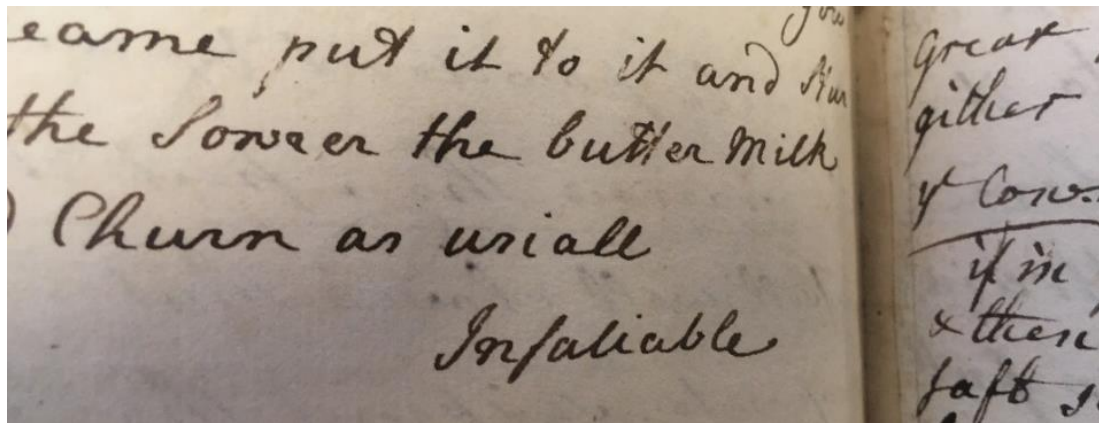 eame put it to it and Stur
the Sowrer the butter Milk
Churn as usiall
Infaliable
great
gither
yr Cow
if in
& then